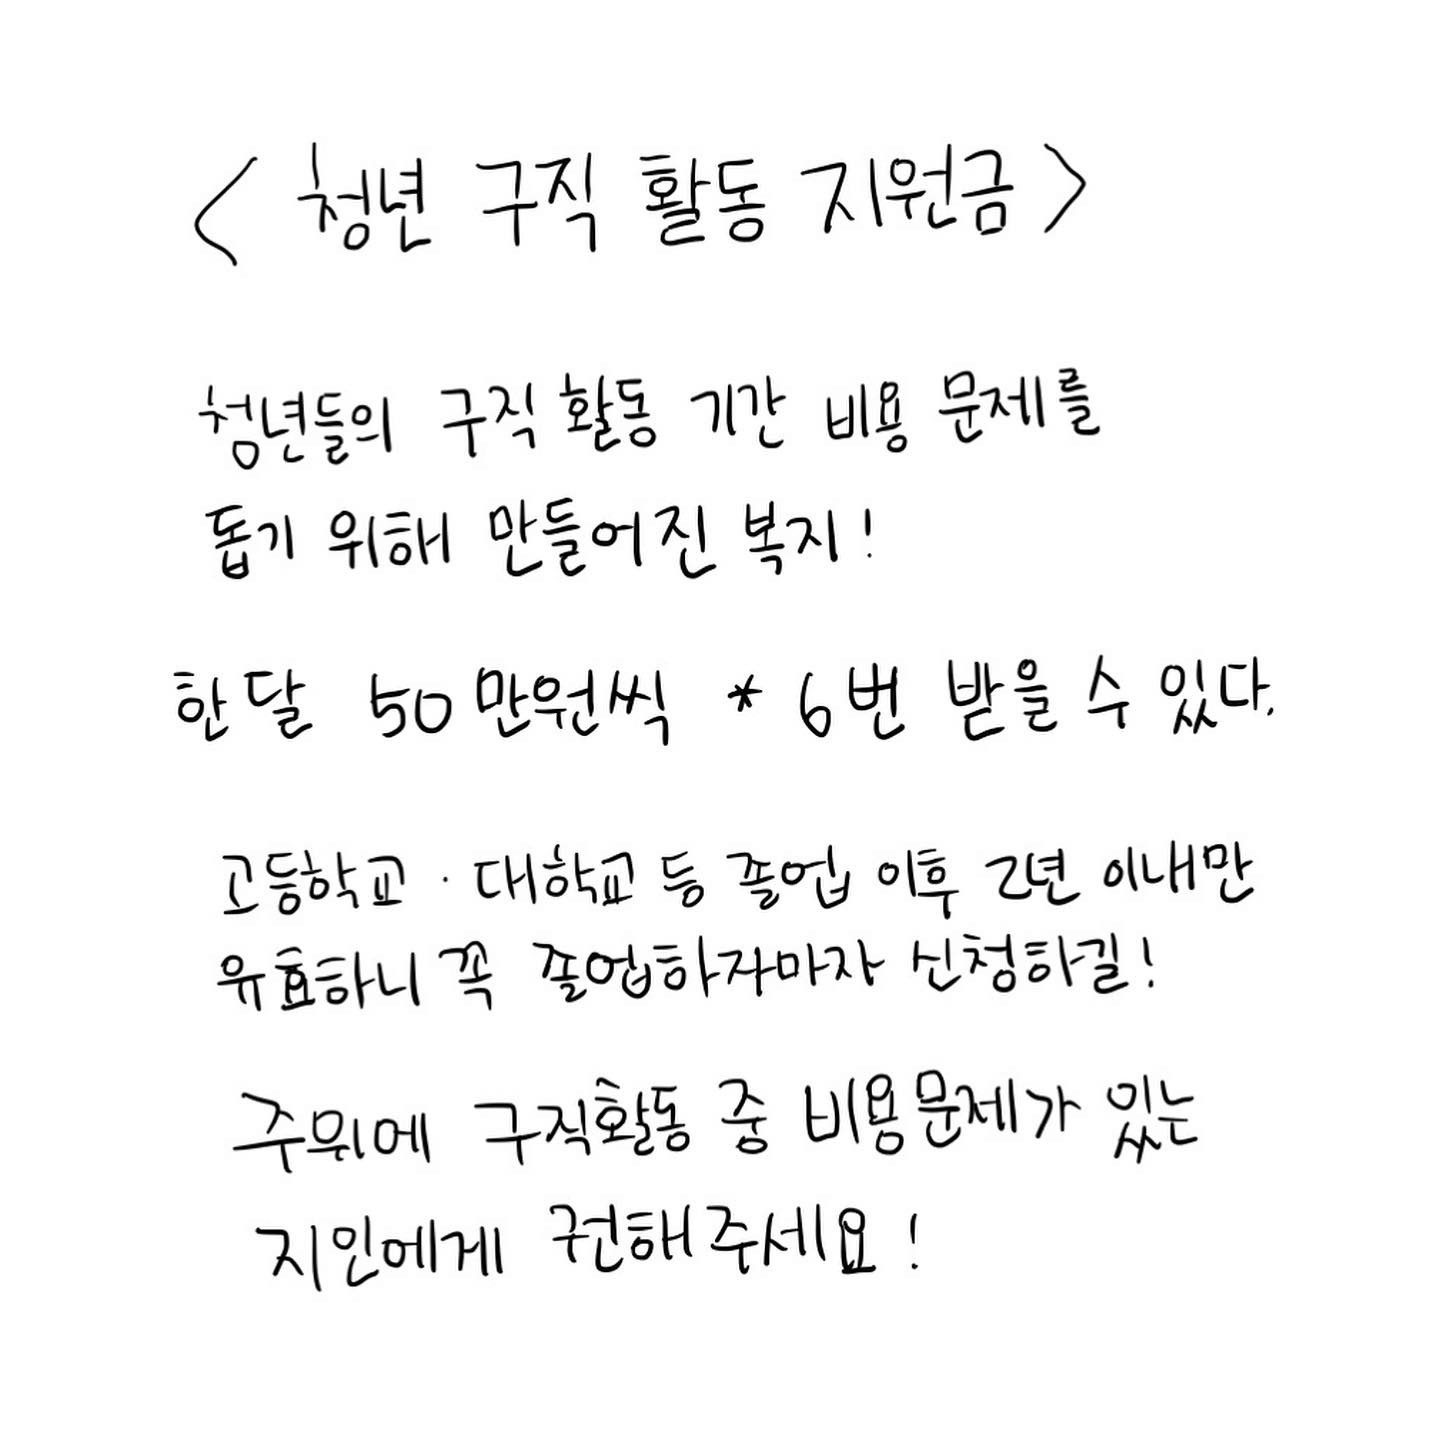 < 청년 구직 활동 지원금 >
청년들의 구직 활동 기간 비용 문제를
돕기 위해 만들어진 복지!
한달 50만원씩 * 6번 받을 수 있다.
고등학교 · 대학교 등 졸업 이후 2년 이내만
유효하니 꼭 졸업하자마자 신청하길!
주위에 구직활동 중 비용문제가 있는
지인에게 권해주세요!